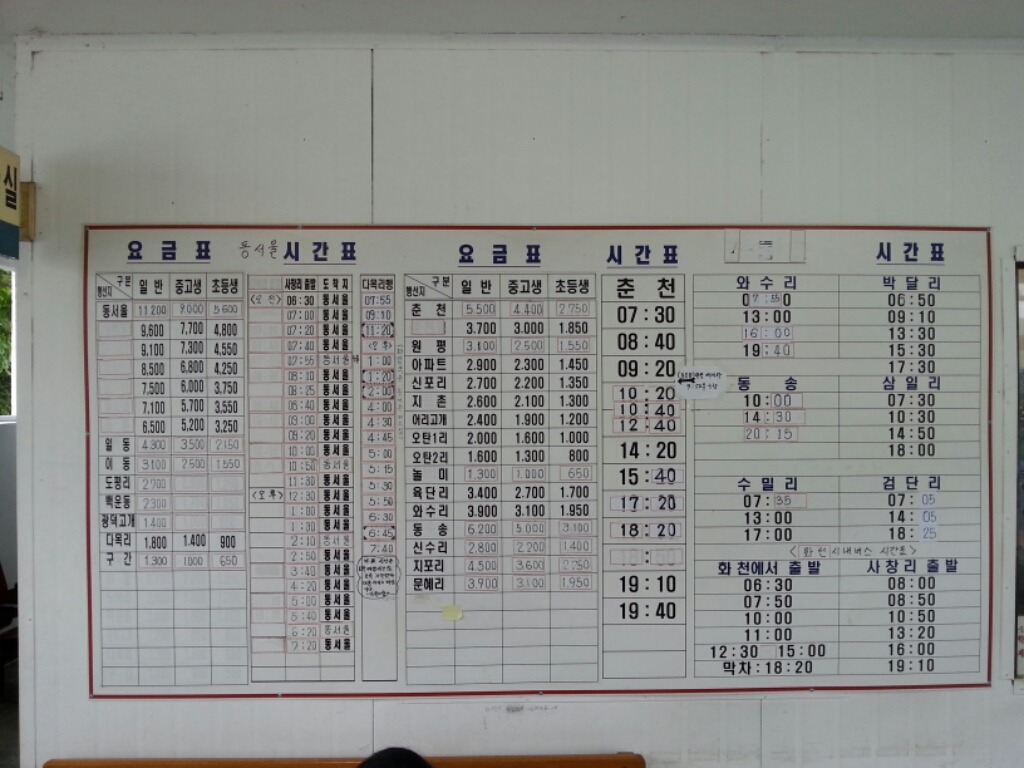 실
요 금 표 동서울 시 간 표 요 금 표 시 간 표 시 간 표
구분 행선지 일 반 중고생 초등생
동서울 11.200 9.000 5.600
9,600 7,700 4,800
9,100 7,300 4,550
8,500 6,800 4,250
7,500 6,000 3,750
7,100 5,700 3,550
6,500 5,200 3,250
일 동 4.300 3.500 2.150
이 동 3.100 2.500 1.550
도평리 2.700
백운동 2.300
광덕고개 1.400
다목리 1,800 1.400 900
구 간 1.300 1000 650
사창리 출발 도 착 지
<오 전> 06 : 30 동서울
07 : 00 동서울
07 : 20 동서울
07 : 40 동서울
07 : 55 동서울
08 : 10 동서울
08 : 25 동서울
동서울
동서울
09 : 20 동서울
10 : 00 동서울
10 : 50 동서울
11 : 30 동서울
<오 후> 12 : 30 동서울
1 : 00 동서울
1 : 30 동서울
2 : 10 동서울
2 : 50 동서울
3 : 40 동서울
4 : 20 동서울
5 : 00 동서울
5 : 40 동서울
6 : 20 동서울
7 : 20 동서울
다목리행
07:55
09:10
11:20
<오 후>
1 : 00
1 : 20
2 : 00
4 : 00
4 : 30
4 : 45
5 : 00
5 : 15
5 : 30
5 : 50
6:30
6:45
7:40
구분 행선지 일 반 중고생 초등생
춘 천 5.500 4.400 2.750
3.700 3.000 1.850
원 평 3.100 2.500 1.550
아파트 2.900 2.300 1.450
신포리 2.700 2.200 1.350
지 촌 2.600 2.100 1.300
어리고개 2.400 1.900 1.200
오탄1리 2.000 1.600 1.000
오탄2리 1.600 1.300 800
놀 미 1,300 1.000 650
육단리 3.400 2.700 1.700
와수리 3.900 3.100 1.950
동 송 6.200 5.000 3.100
신수리 2.800 2.200 1.400
지포리 4.500 3.600 2.250
문혜리 3.900 3.100 1.950
춘 천
07 : 30
08 : 40
09 : 20
10 : 20
10 : 40
12 : 40
14 : 20
15 : 40
17 : 20
18 : 20
19 : 10
19 : 40
와 수 리 박 달 리
07:55 06 : 50
13 : 00 09 : 10
16 : 00 13 : 30
19 : 40 15 : 30
17 : 30
동 송 삼 일 리
10 : 00 07 : 30
14 : 30 10 : 30
20 : 15 14 : 50
18 : 00
수 밀 리 검 단 리
07 : 35 07 : 05
13 : 00 14 : 05
17 : 00 18 : 25
<화천 시내버스 시간표>
화천에서 출발 사창리 출발
06 : 30 08 : 00
07 : 50 08 : 50
10 : 00 10 : 50
11 : 00 13 : 20
12 : 30 15 : 00 16 : 00
막차 : 18 : 20 19 : 10